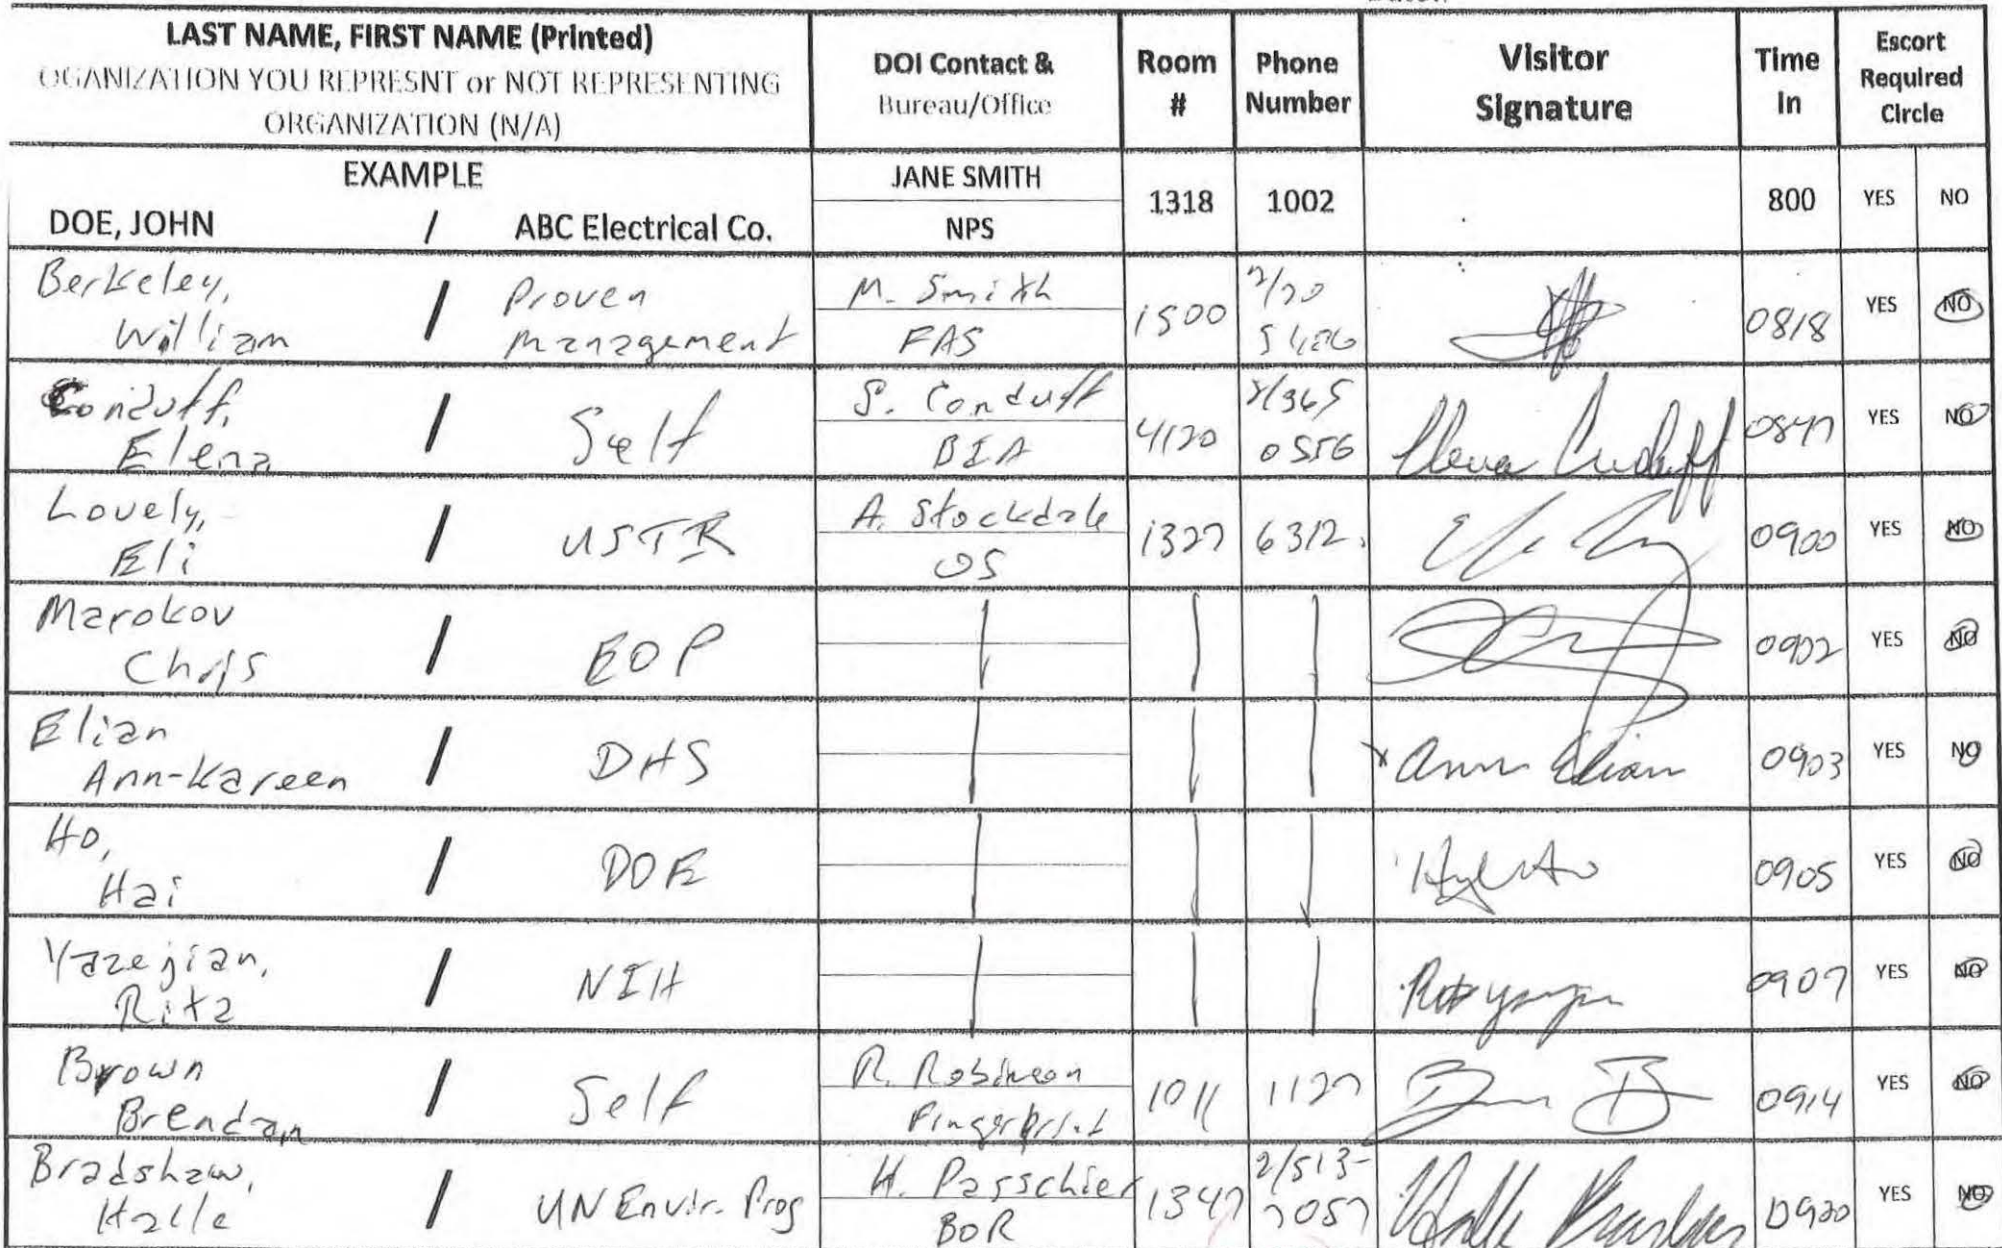 LAST NAME, FIRST NAME (Printed)
OGANIZATION YOU REPRESNT or NOT REPRESENTING
ORGANIZATION (N/A)
DOI Contact &
Bureau/Office
Room
#
Phone
Number
Visitor
Signature
Time
In
Escort
Required
Circle
EXAMPLE
DOE, JOHN / ABC Electrical Co.
JANE SMITH
NPS
1318
1002
800
YES NO
Berkeley,
William
/
Proven
Management
M. Smith
FAS
1500
0818
YES NO
Conduff,
Elena
/
Self
S. Conduff
BIA
4120
0556
0847
YES NO
Lovely,
Eli
/
USTR
A. Stockdale
OS
1327
6312
0900
YES NO
Marokov
Chris
/
EOP
0902
YES NO
Elian
Ann-Kareen
/
DHS
Ann Elian
0903
YES NO
Ho,
Hai
/
DOE
0905
YES NO
Yazejian,
Rita
/
NIH
0907
YES NO
Brown
Brendan
/
Self
R. Robinson
Fingerprint
1011
1127
0914
YES NO
Bradshaw,
Halle
/
UN Envir. Prog
H. Passchier
BOR
1347
2/513-
7057
Halle Bradshaw
0920
YES NO